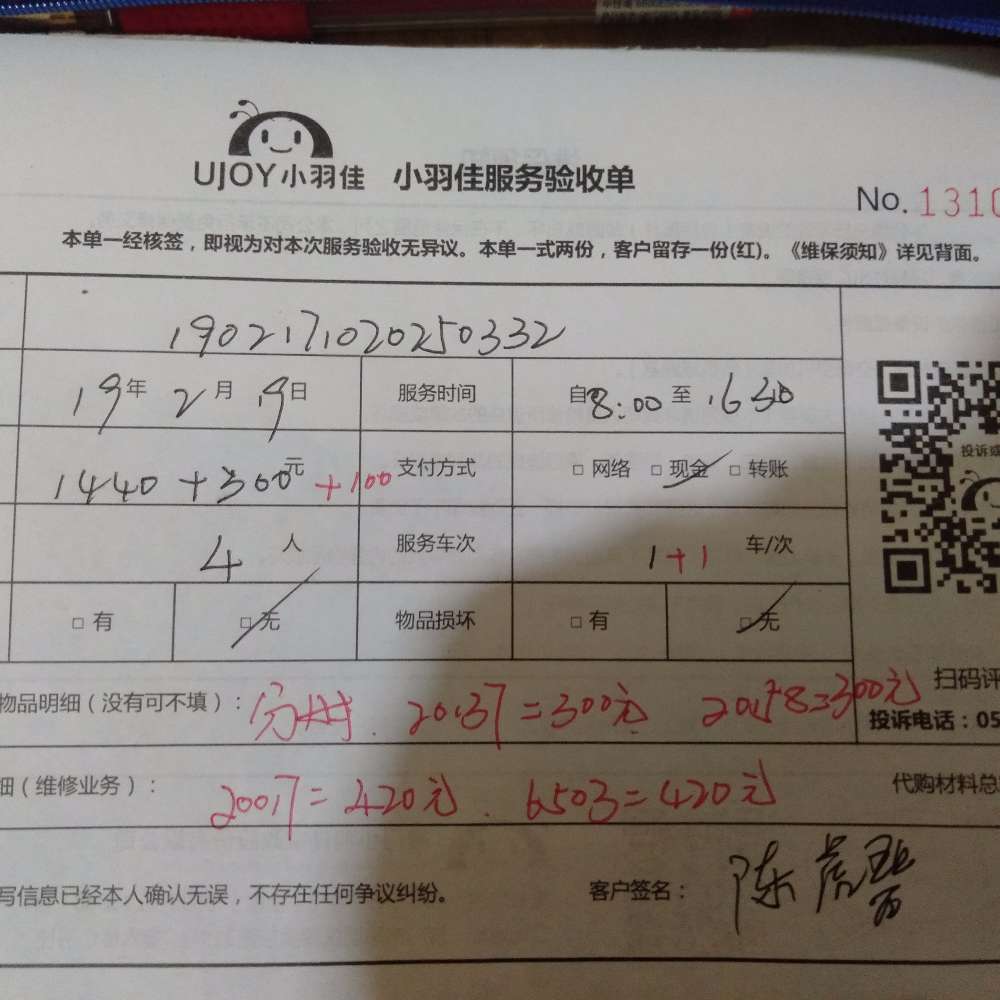 UJOY小羽佳 小羽佳服务验收单
No. 1310
本单一经核签，即视为对本次服务验收无异议。本单一式两份，客户留存一份(红)。《维保须知》详见背面。
1902171020250332
19年 2月 19日 服务时间 自8:00至1630
1440+300元+100 支付方式 □ 网络 □ 现金 □ 转账
投诉或
4 人 服务车次 1+1 车/次
□ 有 □ 无 物品损坏 □ 有 □ 无
扫码评
物品明细（没有可不填）： 20137=300元 20158=300元
投诉电话：05
细（维修业务）： 2007=420元. 6503=420元 代购材料总
写信息已经本人确认无误，不存在任何争议纠纷。 客户签名： 陈